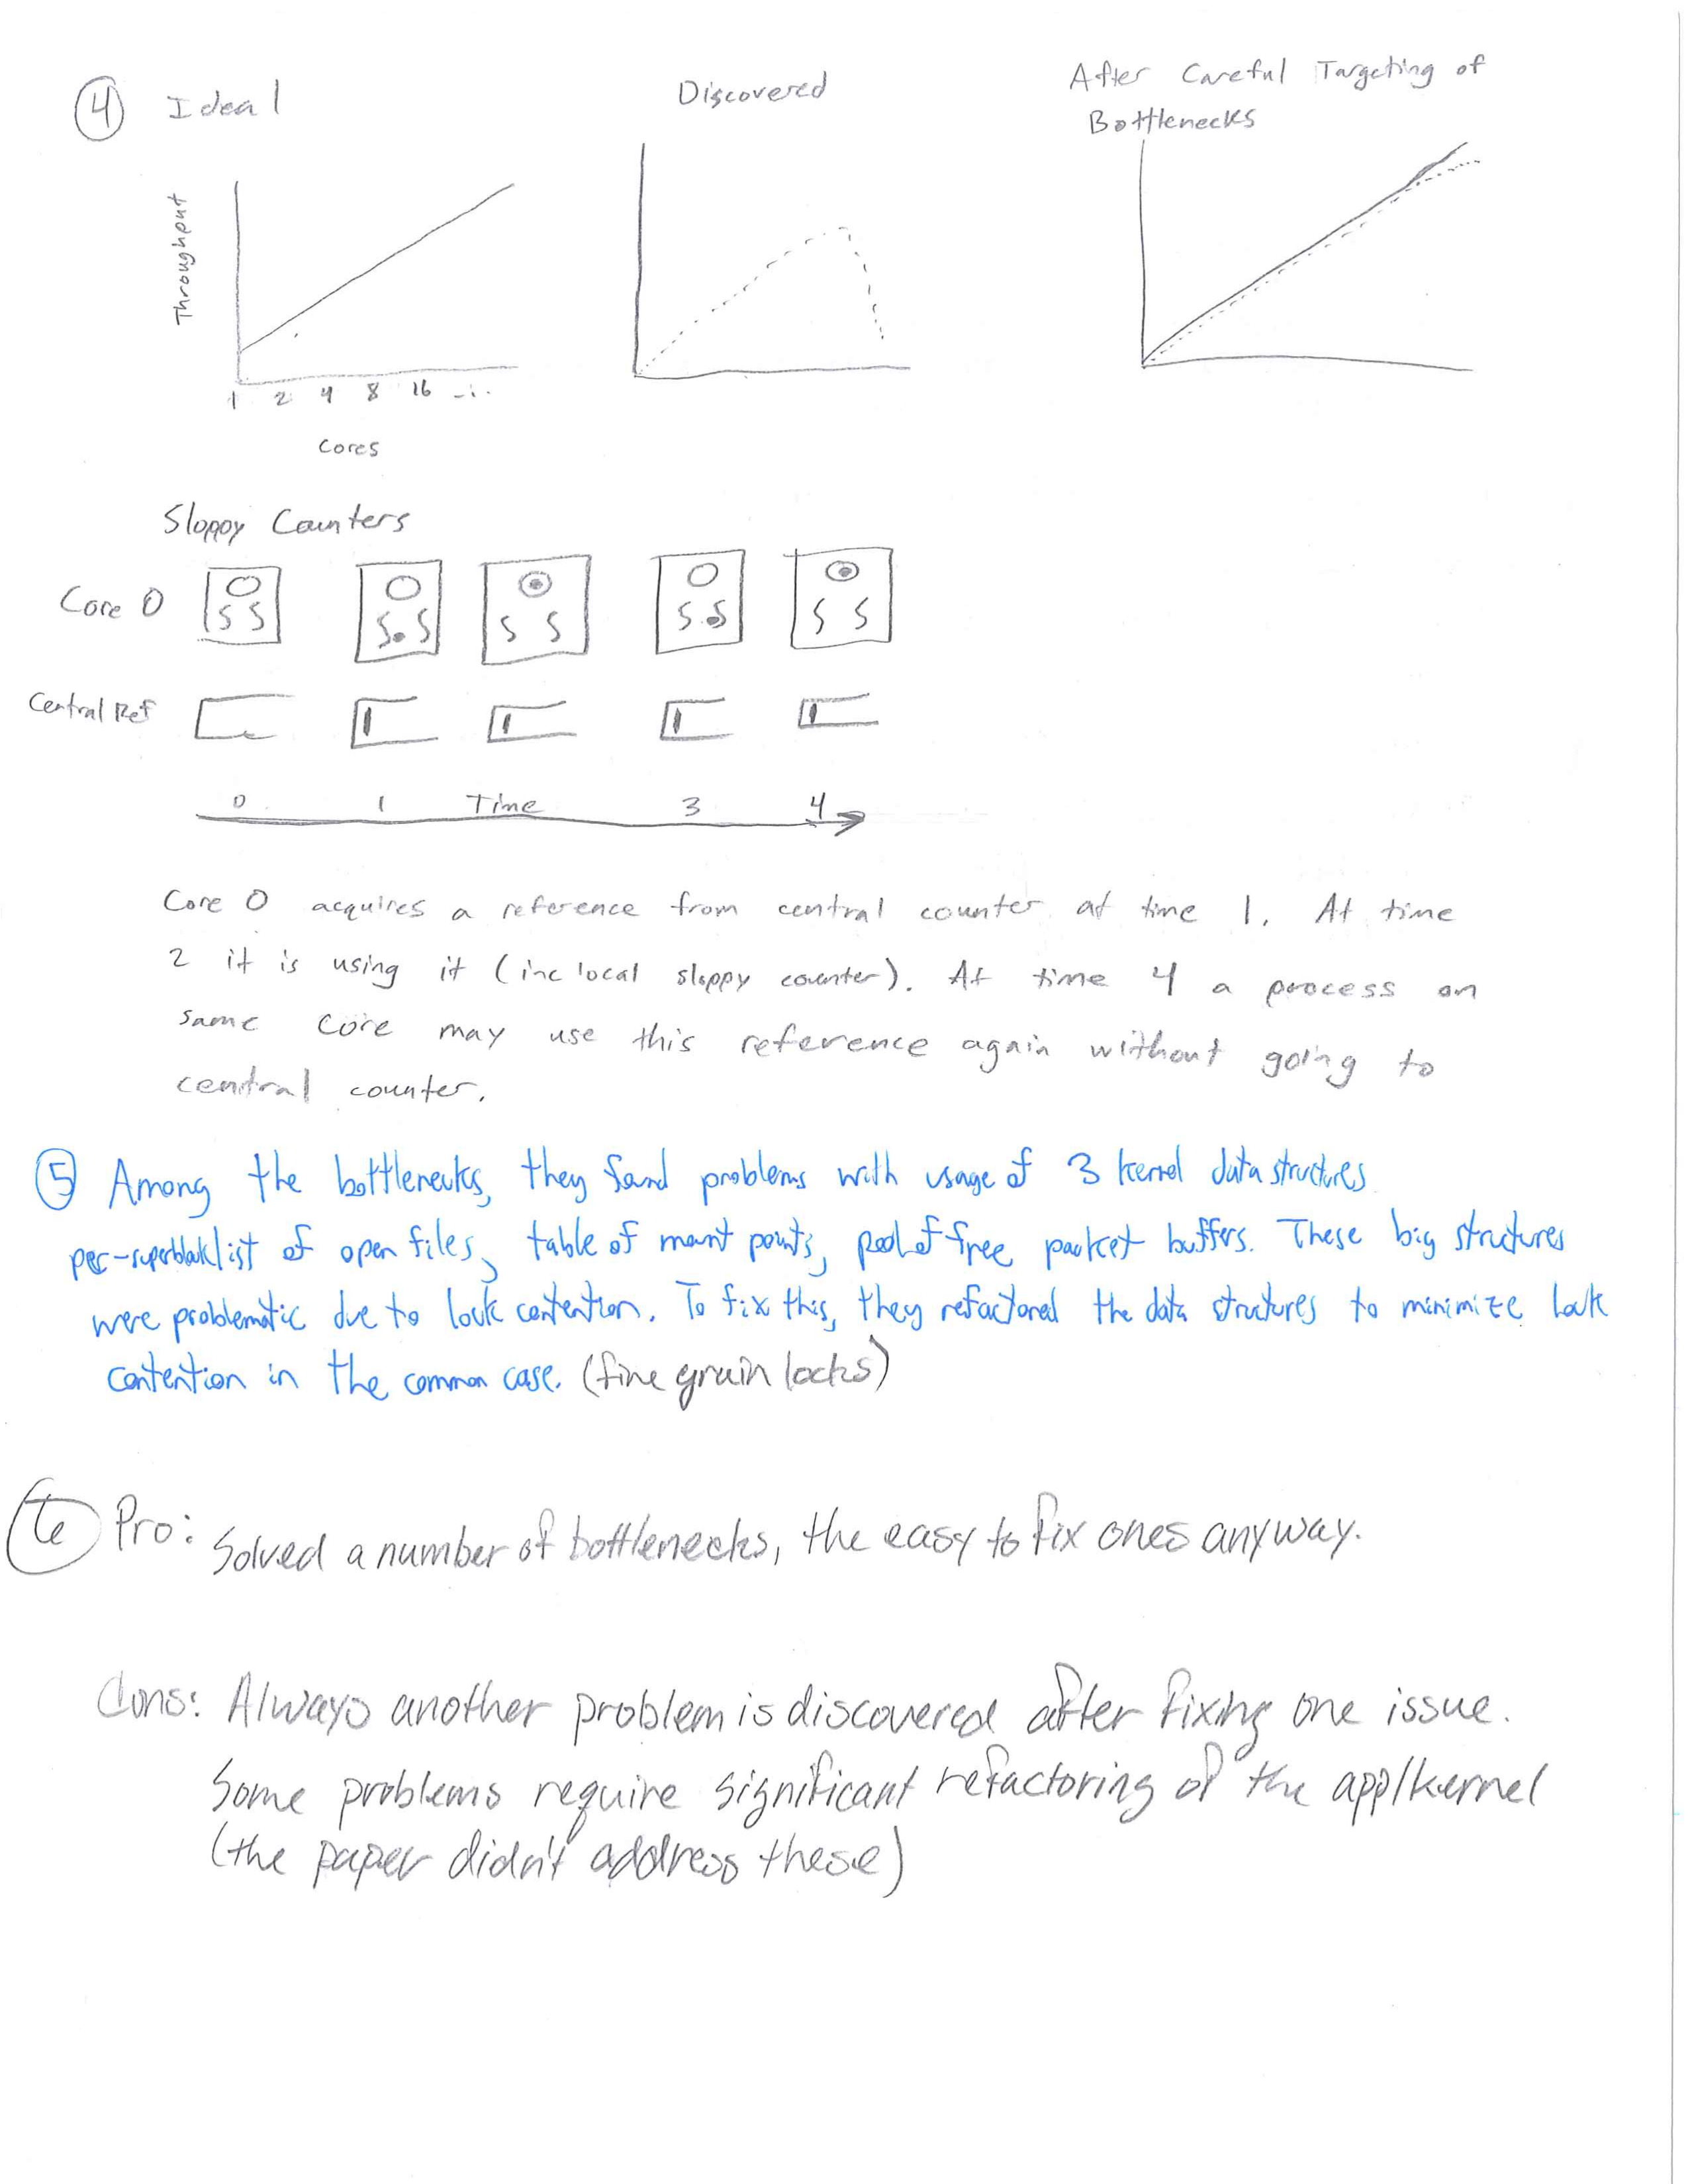 4 Ideal
Discovered
After Careful Targeting of
Bottlenecks
Throughput
1 2 4 8 16 ...
Cores
Sloppy Counters
Core 0
S S
S S
S S
S S
S S
Central Ref
1
1
1
1
0 1 Time 3 4
Core 0 acquires a reference from central counter at time 1. At time
2 it is using it (inc local sloppy counter). At time 4 a process on
same core may use this reference again without going to
central counter.
5 Among the bottlenecks, they found problems with usage of 3 kernel data structures
per-superblock list of open files, table of mount points, pool of free packet buffers. These big structures
were problematic due to lock contention. To fix this, they refactored the data structures to minimize lock
contention in the common case. (fine grain locks)
6 Pro: Solved a number of bottlenecks, the easy to fix ones anyway.
Cons: Always another problem is discovered after fixing one issue.
Some problems require significant refactoring of the app/kernel
(the paper didn't address these)